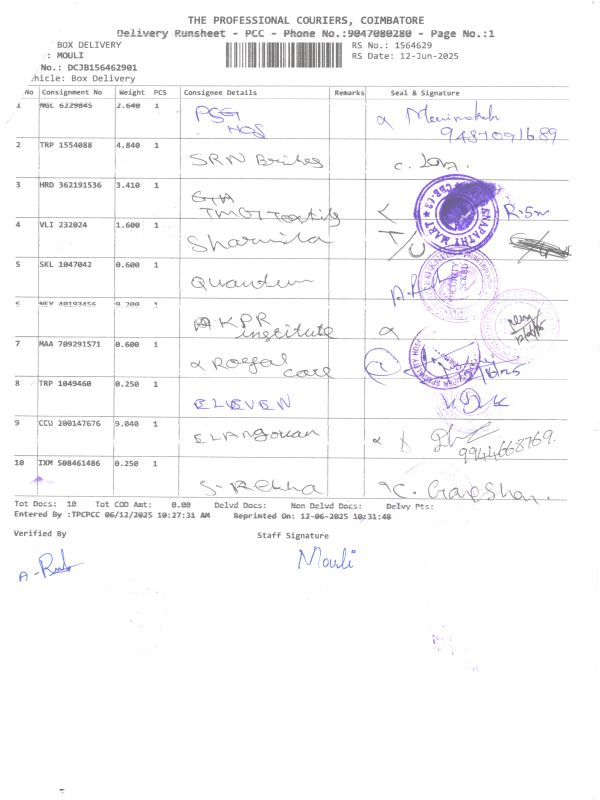 THE PROFESSIONAL COURIERS, COIMBATORE
Delivery Runsheet - PCC - Phone No.:9047080280 - Page No.:1
BOX DELIVERY
RS No.: 1564629
: MOULI
RS Date: 12-Jun-2025
No.: DCJB156462901
hicle: Box Delivery
No Consignment No Weight PCS Consignee Details Remarks Seal & Signature
1 NGL 6229845 2.640 1 PSG
HOS
2 TRP 1554088 4.840 1 SRN
3 HRD 362191536 3.410 1 GTA
R.5m
4 VLI 232024 1.600 1 Sharmila
5 SKL 1047042 0.600 1 Quantum
6 NEY 40193456 9.200 1 KPR
institute
7 MAA 709291571 0.600 1 Royal
care
8 TRP 1049460 0.250 1 ELEVEN
9 CCU 200147676 9.040 1 ELANgovan
9944668769.
10 IXM 508461486 0.250 1 S-Rekha K. Ganeshan.
Tot Docs: 10 Tot COD Amt: 0.00 Delvd Docs: Non Delvd Docs: Delvy Pts:
Entered By :TPCPCC 06/12/2025 10:27:31 AM Reprinted On: 12-06-2025 10:31:48
Verified By
Staff Signature
Mouli